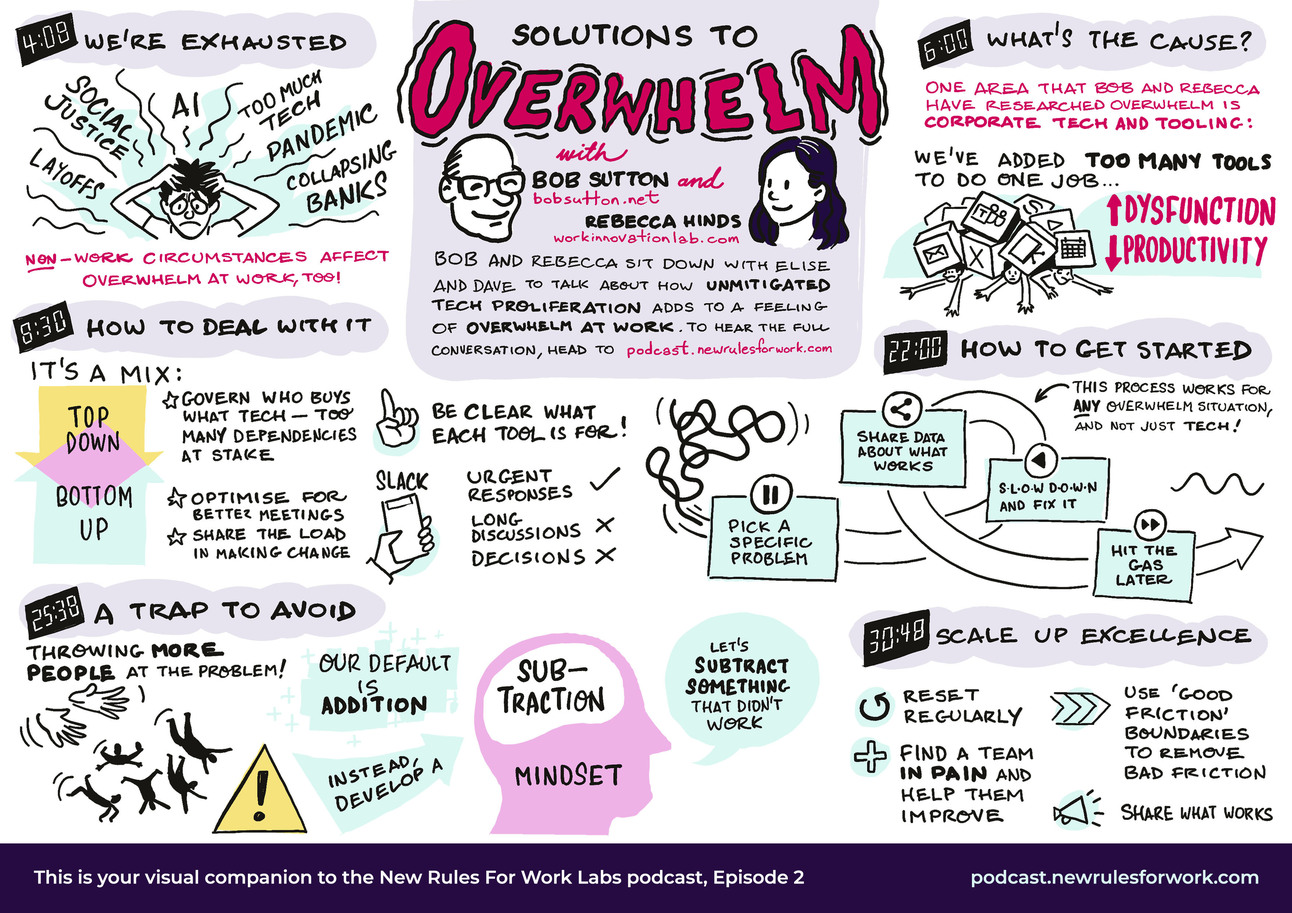 4:08
WE'RE EXHAUSTED
SOCIAL
JUSTICE
AI
TOO MUCH
TECH
PANDEMIC
LAYOFFS
COLLAPSING
BANKS
NON-WORK CIRCUMSTANCES AFFECT
OVERWHELM AT WORK, TOO!
SOLUTIONS TO
OVERWHELM
with
BOB SUTTON and
bobsutton.net
REBECCA HINDS
workinnovationlab.com
BOB AND REBECCA SIT DOWN WITH ELISE
AND DAVE TO TALK ABOUT HOW UNMITIGATED
TECH PROLIFERATION ADDS TO A FEELING
OF OVERWHELM AT WORK. TO HEAR THE FULL
CONVERSATION, HEAD TO podcast.newrulesforwork.com
6:00
WHAT'S THE CAUSE?
ONE AREA THAT BOB AND REBECCA
HAVE RESEARCHED OVERWHELM IS
CORPORATE TECH AND TOOLING:
WE'VE ADDED TOO MANY TOOLS
TO DO ONE JOB...
DYSFUNCTION
PRODUCTIVITY
8:30
HOW TO DEAL WITH IT
IT'S A MIX:
TOP
DOWN
BOTTOM
UP
GOVERN WHO BUYS
WHAT TECH – TOO
MANY DEPENDENCIES
AT STAKE
OPTIMISE FOR
BETTER MEETINGS
SHARE THE LOAD
IN MAKING CHANGE
BE CLEAR WHAT
EACH TOOL IS FOR!
SLACK
URGENT
RESPONSES
LONG
DISCUSSIONS
DECISIONS
22:00
HOW TO GET STARTED
THIS PROCESS WORKS FOR
ANY OVERWHELM SITUATION,
AND NOT JUST TECH!
PICK A
SPECIFIC
PROBLEM
SHARE DATA
ABOUT WHAT
WORKS
S·L·O·W D·O·W·N
AND FIX IT
HIT THE
GAS
LATER
25:38
A TRAP TO AVOID
THROWING MORE
PEOPLE AT THE PROBLEM!
OUR DEFAULT
IS
ADDITION
INSTEAD,
DEVELOP A
SUB-
TRACTION
MINDSET
LET'S
SUBTRACT
SOMETHING
THAT DIDN'T
WORK
30:48
SCALE UP EXCELLENCE
RESET
REGULARLY
FIND A TEAM
IN PAIN AND
HELP THEM
IMPROVE
USE 'GOOD
FRICTION'
BOUNDARIES
TO REMOVE
BAD FRICTION
SHARE WHAT WORKS
This is your visual companion to the New Rules For Work Labs podcast, Episode 2
podcast.newrulesforwork.com